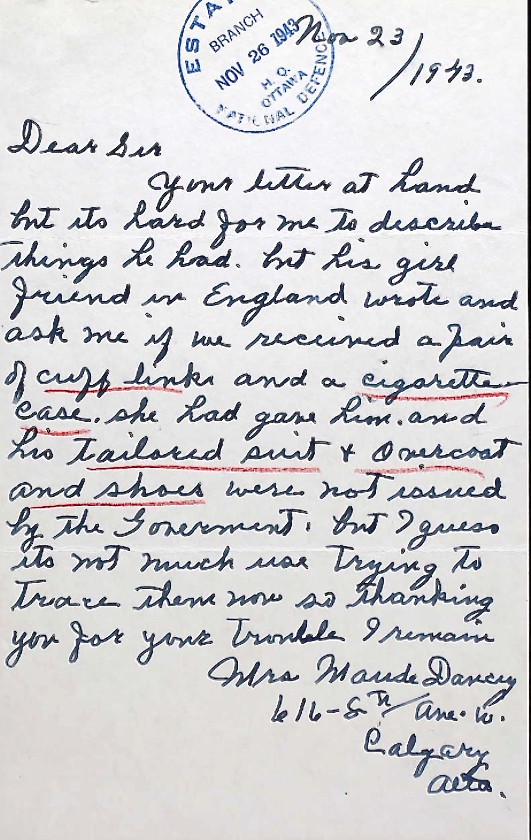 ESTA
BRANCH
NOV 26 1943
H. Q.
OTTAWA
NATIONAL DEFENCE
Nov 23/1943.
Dear Sir
Your letter at hand
but its hard for me to describe
things he had. but his girl
friend in England wrote and
ask me if we received a pair
of cuff links and a cigarette
case. she had gave him. and
his tailored suit & Overcoat
and shoes were not issued
by the Goverment. but I guess
its not much use trying to
trace them now so thanking
you for your trouble I remain
Mrs Maude Dancey
616-8th/Ave. W.
Calgary
Alta.